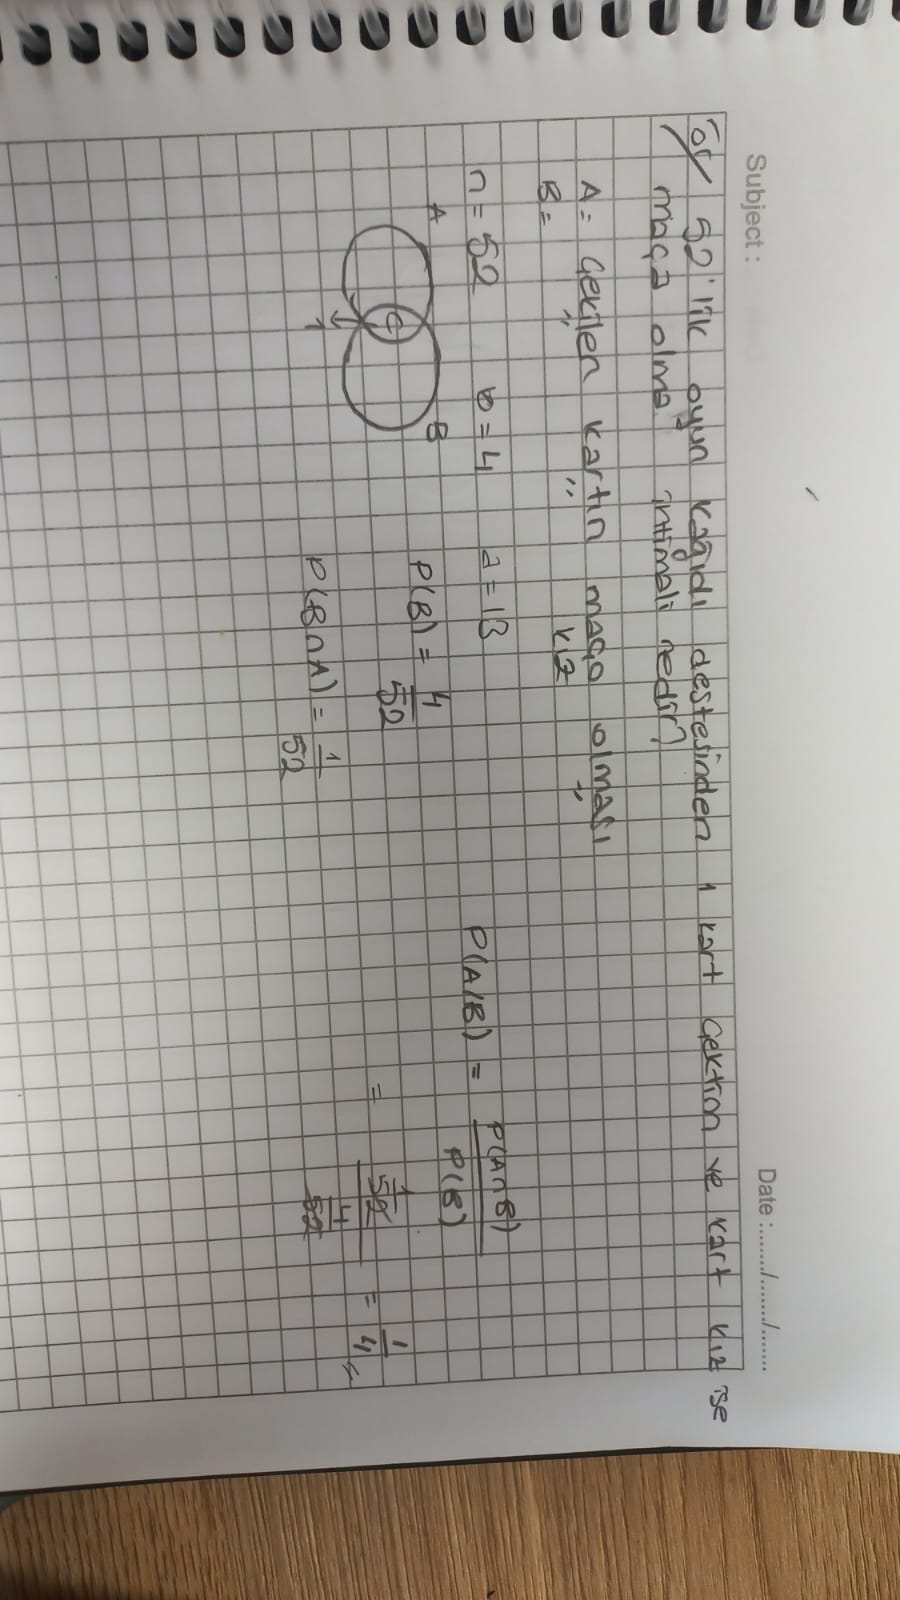 Subject :
Date :......./......./.......
Ör/ 52'lik oyun kağıdı destesinden 1 kart çektin ve kart kız ise
maça olma ihtimali nedir?
A = Çekilen kartın maça olması
B = " " kız "
n = 52 b = 4 a = 13
A B
P(B) = 4/52
P(A/B) = P(A∩B)/P(B)
= (1/52)/(4/52) = 1/4
1
P(B∩A) = 1/52